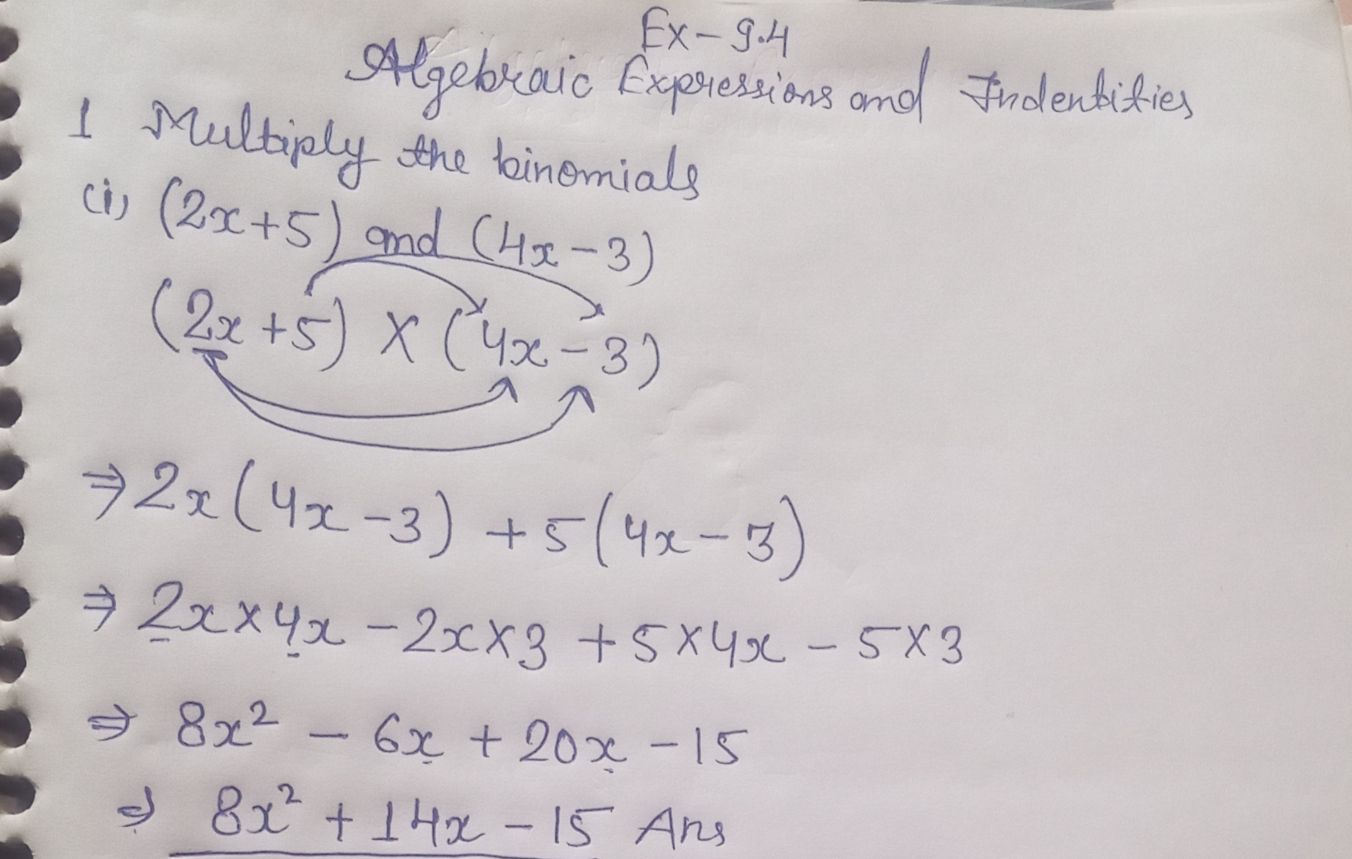 Ex-9.4
Algebraic Expressions and Indentities
1 Multiply the binomials
(i) (2x+5) and (4x-3)
(2x+5) × (4x-3)
⇒ 2x(4x-3) +5(4x-3)
⇒ 2x×4x -2x×3 +5×4x - 5×3
⇒ 8x² - 6x + 20x -15
⇒ 8x² + 14x - 15 Ans